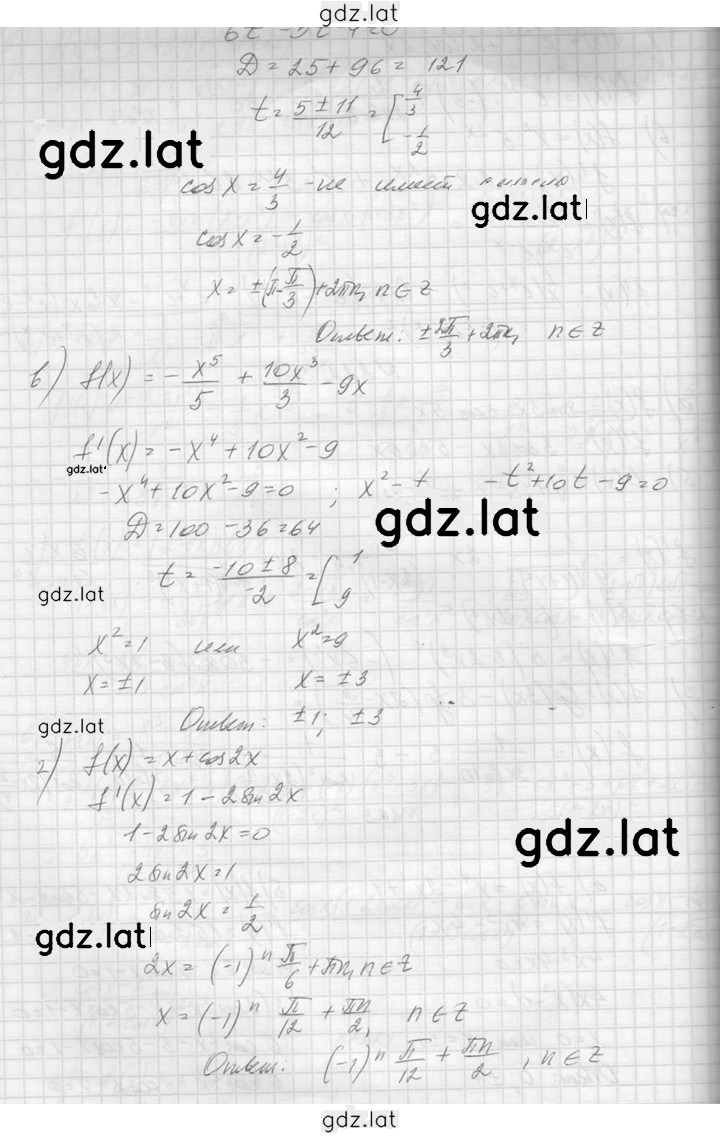 gdz.lat
6t² - 5t - 4 = 0
D = 25 + 96 = 121
t = (5 ± 11)/12 = [4/3; -1/2
gdz.lat
cos x = 4/3 - не имеет
gdz.lat
cos x = -1/2
x = ±(π - π/3) + 2πn, n ∈ Z
Ответ: ± 2π/3 + 2πn, n ∈ Z
в) f(x) = -x⁵/5 + 10x³/3 - 9x
f'(x) = -x⁴ + 10x² - 9
gdz.lat
-x⁴ + 10x² - 9 = 0 ; x² - t -t² + 10t - 9 = 0
gdz.lat
D = 100 - 36 = 64
t = (-10 ± 8)/-2 = [1; 9
gdz.lat
x² = 1 или x² = 9
x = ±1 x = ±3
Ответ: ±1; ±3
gdz.lat
г) f(x) = x + cos2x
f'(x) = 1 - 2sin2x
1 - 2sin2x = 0
gdz.lat
2sin2x = 1
sin2x = 1/2
gdz.lat
2x = (-1)ⁿ π/6 + πn, n ∈ Z
x = (-1)ⁿ π/12 + πn/2, n ∈ Z
Ответ: (-1)ⁿ π/12 + πn/2, n ∈ Z
gdz.lat